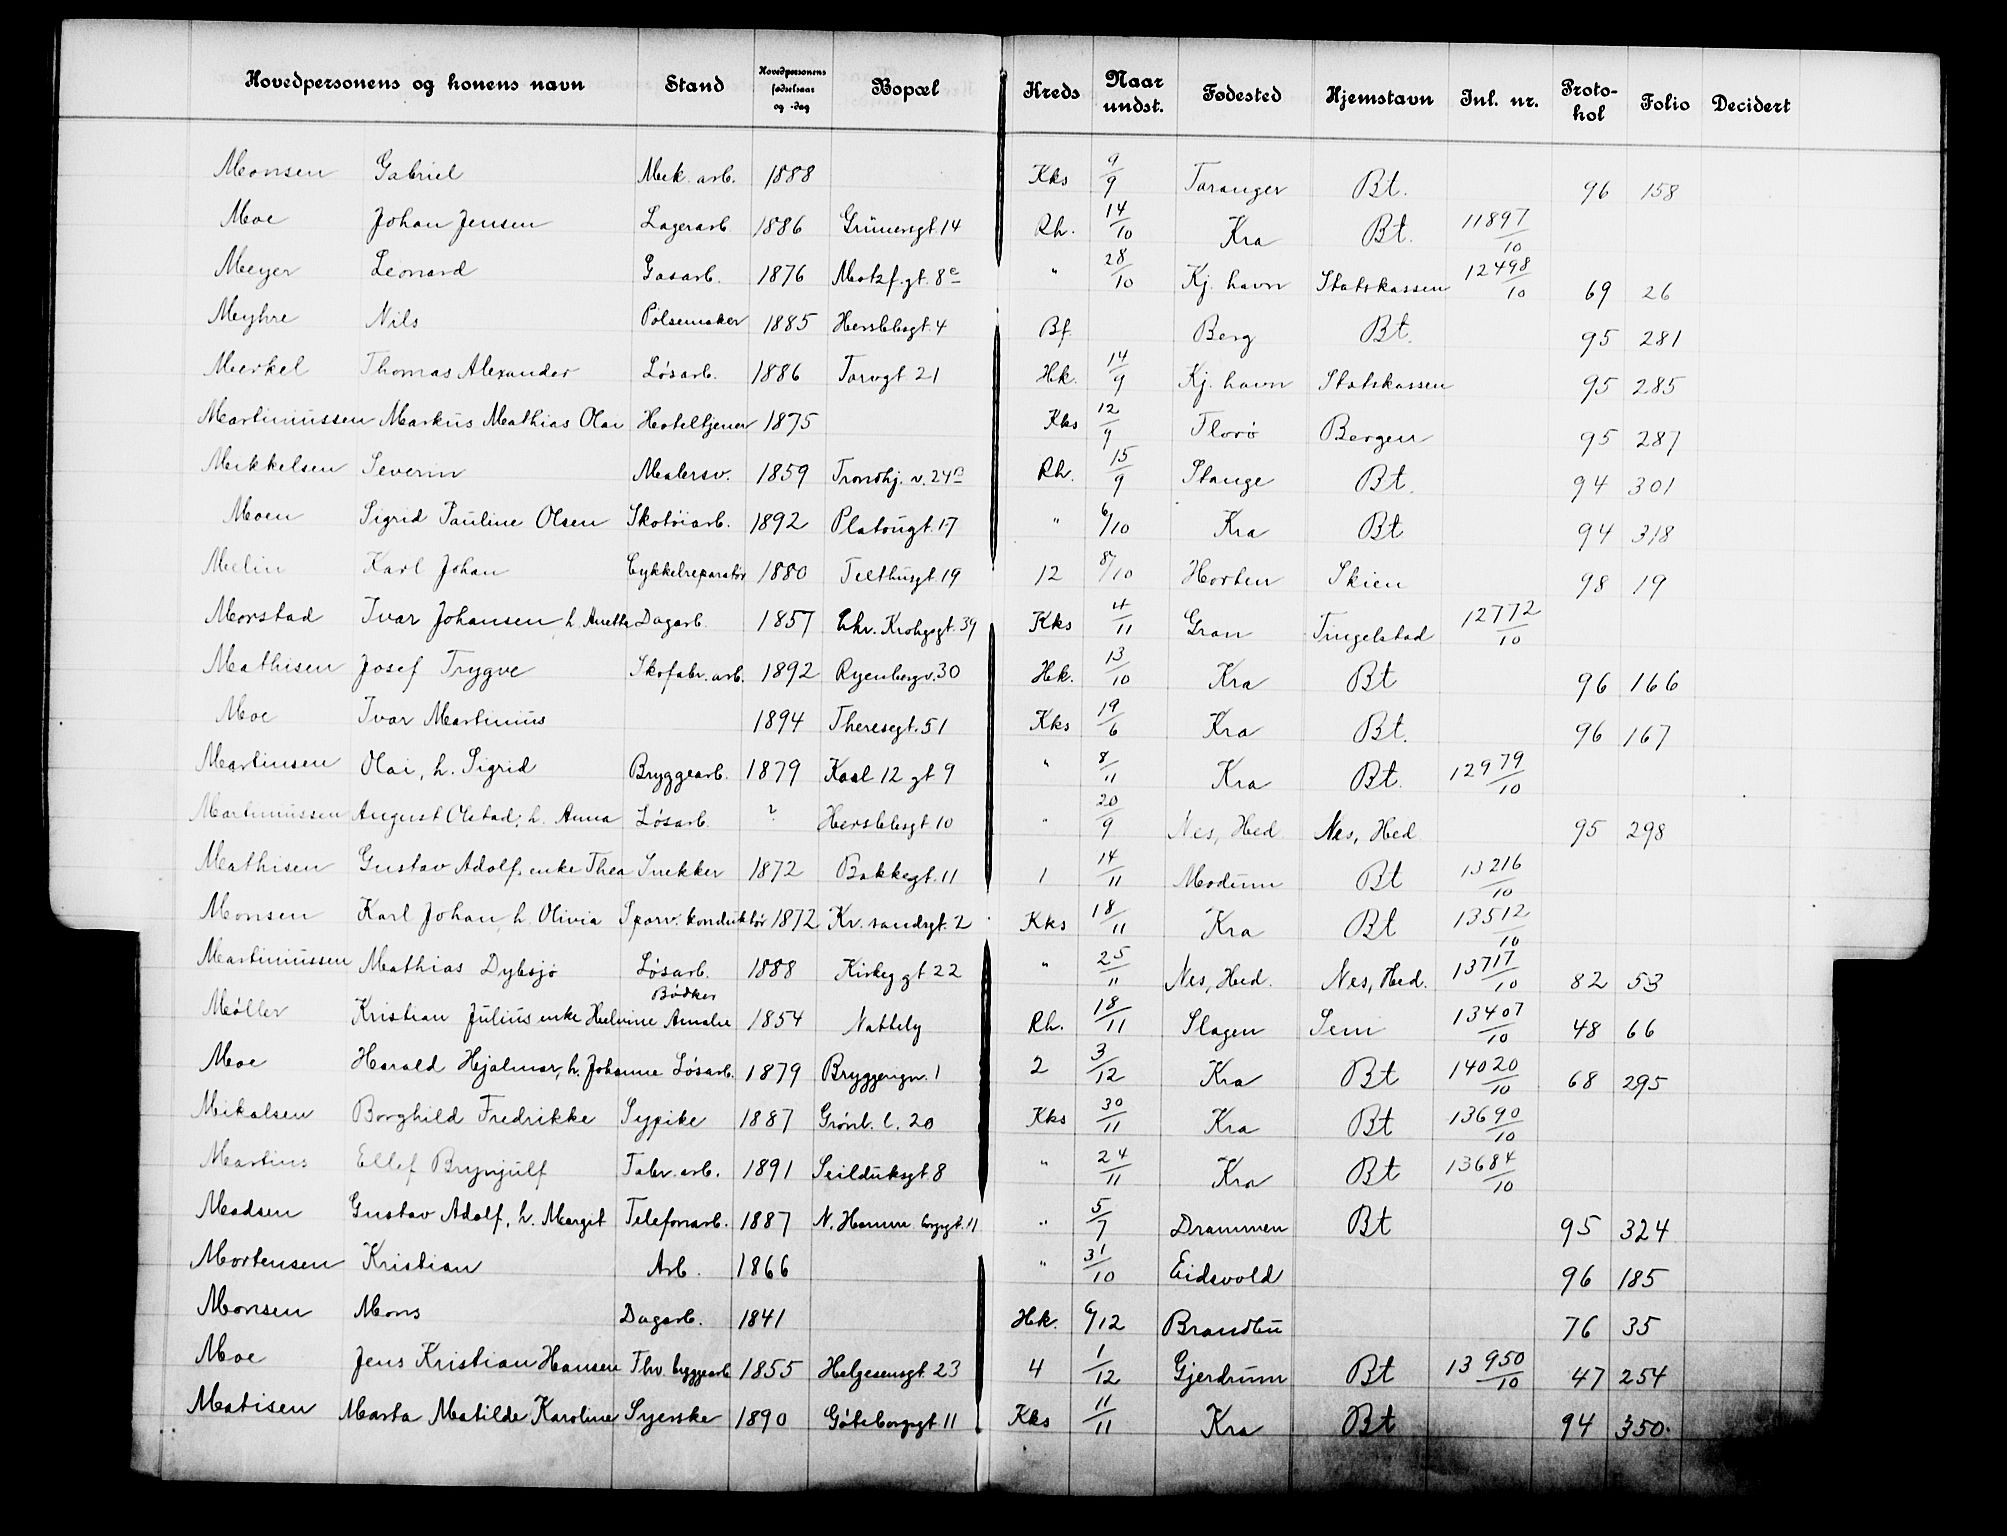 Hovedpersonens og konens navn Stand Hovedpersonens fødselsaar og -dag Bopæl Kreds Naar undst. Fødested Hjemstavn Inl. nr. Proto-kol Folio Decidert
Monsen Gabriel Mek. arb. 1888 Kks 9/9 Taranger Bt. 96 158
Moe Johan Jensen Lagerarb. 1886 Grünersgt. 14 Rh. 14/10 Kra Bt. 11897/10
Meyer Leonard Gasarb. 1876 Motzf.gt. 8c " 28/10 Kj. havn Statskassen 12498/10 69 26
Myhre Nils Pølsemaker 1885 Herslebsgt. 4 Bf. Berg Bt. 95 281
Merkel Thomas Alexander Løsarb. 1886 Torvgt. 21 Hk. 14/9 Kj. havn Statskassen 95 285
Martinussen Markus Mathias Olai Hoteltjener 1875 Kks 12/9 Florø Bergen 95 287
Mikkelsen Severin Malersv. 1859 Trondhj. v. 24B Rh. 15/9 Stange Bt. 94 301
Moen Sigrid Pauline Olsen Skotøiarb. 1892 Platougt. 17 " 6/10 Kra Bt 94 318
Melin Karl Johan Cykkelreparatør 1880 Telthusgt 19 12 8/10 Horten Skien 98 19
Morstad Ivar Johansen h. Anette Dagarb. 1857 Chr. Krohgsgt. 39 Kks 4/11 Gran Tingelstad 12772/10
Mathisen Josef Trygve Skofabr. arb. 1892 Ryenbergv. 30 Hk. 13/10 Kra Bt 96 166
Moe Ivar Martinius 1894 Theresegt. 51 Kks 19/6 Kra Bt. 96 167
Martinsen Olai, h. Sigrid Bryggearb. 1879 Karl 12 gt 9 " 8/11 Kra Bt. 12979/10
Martinussen August Olstad, h. Anna Løsarb. ? Herslebsgt. 10 " 20/9 Nes, Hed Nes, Hed 95 298
Mathisen Gustav Adolf, enke Thea Snekker 1872 Bakkegt. 11 1 14/11 Modum Bt 13216/10
Monsen Karl Johan, h. Olivia Sporv. konduktør 1872 Kr. sandsgt. 2 Kks 18/11 Kra Bt 13512/10
Martinussen Mathias Dybsjø Løsarb. 1888 Kirkeggt 22 " 25/11 Nes, Hed. Nes, Hed. 13717/10 82 53
Møller Kristian Julius enke Helvine Amalie Bødker 1854 Nattely Rh. 18/11 Slagen Sem 13407/10 48 66
Moe Harald Hjalmar, h. Johanne Løsarb. 1879 Bryggengn. 1 2 3/12 Kra Bt 14020/10 68 295
Mikalsen Borghild Fredrikke Sypike 1887 Grønl. l. 20 Kks 30/11 Kra Bt 13690/10
Martins Ellef Brynjulf Fabr. arb. 1891 Seilduksgt. 8 " 24/11 Kra Bt 13684/10
Madsen Gustav Adolf, h. Margit Telefonarb. 1887 N. Hamm. borggt. 11 " 5/7 Drammen Bt 95 324
Mortensen Kristian Arb. 1866 " 31/10 Eidsvold 96 185
Monsen Mons Dagarb. 1841 Hk. 6/12 Brandbu 76 35
Moe Jens Kristian Hansen Thv. byggearb 1855 Helgesensgt. 23 4 1/12 Gjerdrum Bt 13950/10 47 254
Matisen Marta Matilde Karoline Syerske 1890 Gøteborggt. 11 Kks 11/11 Kra Bt 94 350.